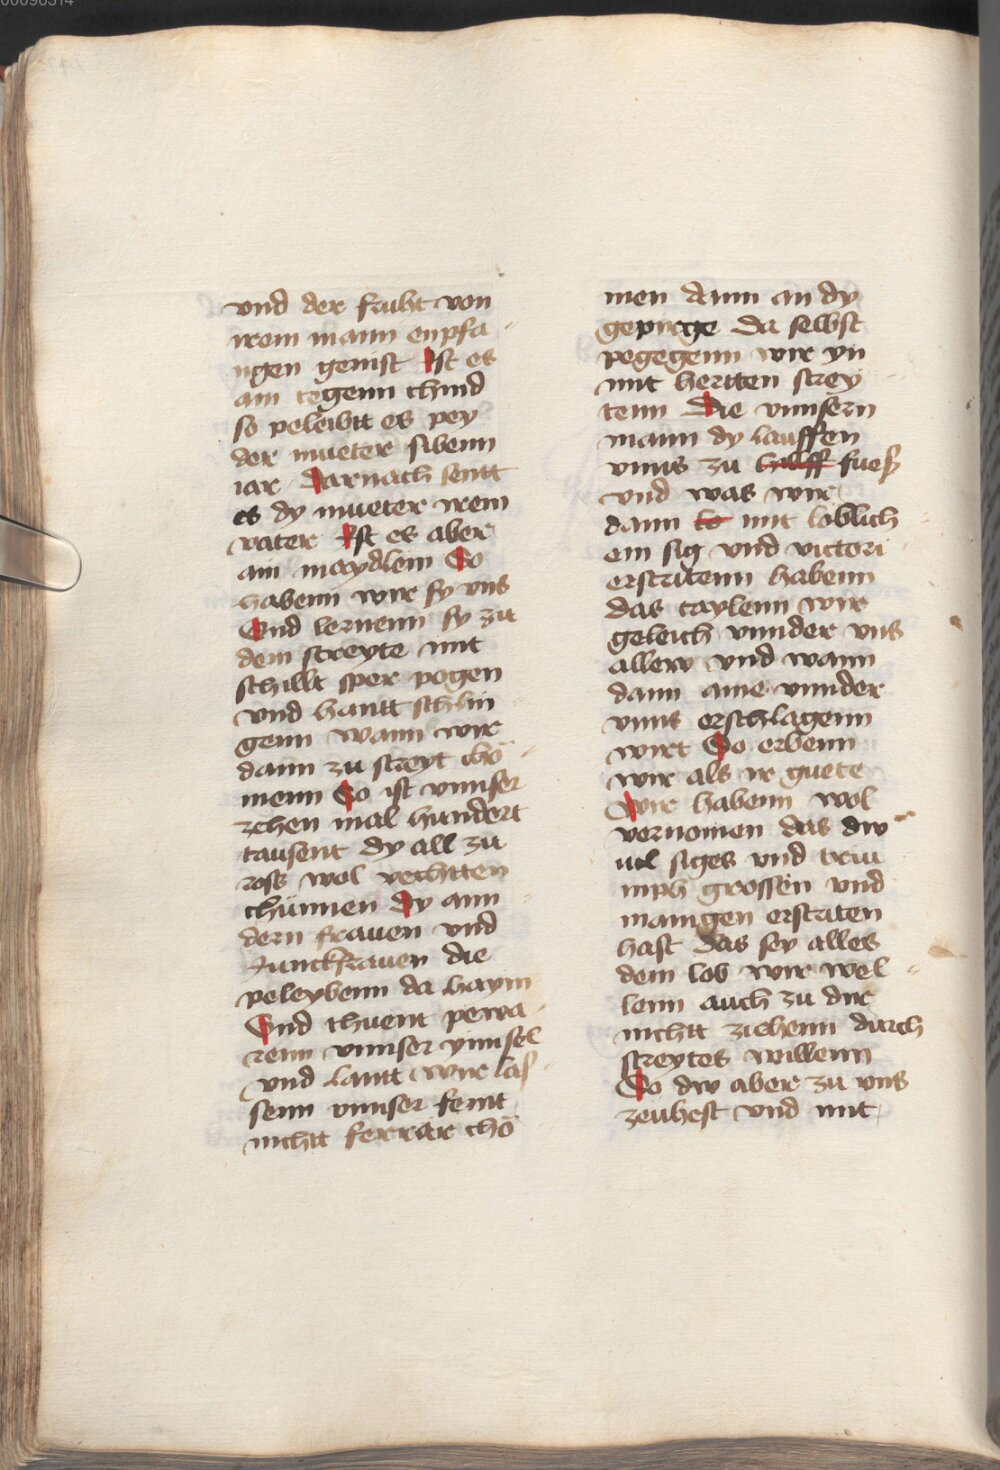 00096514
vnd der frucht von
irem mann enpfa
ngen genist Ist es
ain tegenn chind
so peleibtt es pey
der mueter sibenn
iar Darnach sentt
es dy mueter irem
vater Ist es aber
ain maydlein So
habenn wir sy vns
Vnd lernenn sy zu
dem streyte mit
schiltt sper pogen
vnd hantt schlin
genn wann wir
dann zu streyt chö
menn So ist vnnser
zehen mal hundert
tausent dy all zu
ross wol vechtten
chünnen Dy ann
dern frauen vnd
Junckfrauen die
peleybenn da haym
Vnd thuent pewa
renn vnnser ynnsel
vnd lantt wir las
senn vnnser feint
nichtt ferrar chö
men dann an dy
gepirge da selbst
pegegenn wir yn
mit hertten strey
tenn Die vnnsern
mann dy lauffen
vnns zu hilff fuess
vnd was wir
dann lo mit loblich
em sig vnd victori
erstritenn habenn
das taylenn wir
geleich vnnder vns
allew vnd wann
dann aine vnnder
vnns erschlagenn
wirt So erbenn
wir als ir guete
Wir habenn wol
vernomen das dw
uil siges vnd triu
mph grossen vnd
manigen erstriten
hast das sey alles
dem lob wir wel
lenn auch zu dir
nichtt ziehenn durch
streytes willenn
So dw aber zu vns
zeuhest vnd mit